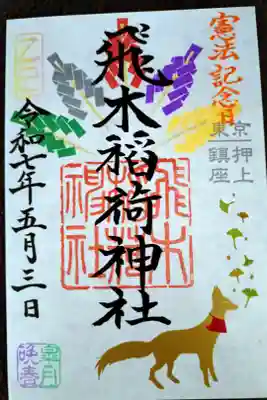 憲法記念日
東京 押上
鎮座
飛木稲荷神社
飛木稲荷神社
令和七年五月三日
乙巳
皐月
晩春